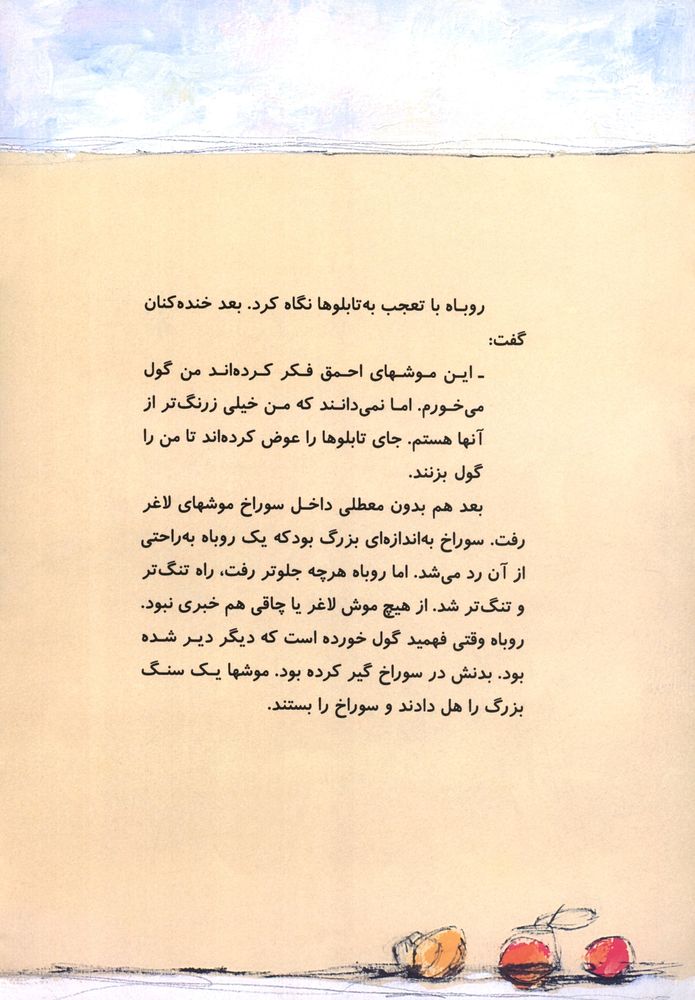 روباه با تعجب به‌تابلوها نگاه کرد. بعد خنده‌کنان
گفت:
ـ این موشهای احمق فکر کرده‌اند من گول
می‌خورم. اما نمی‌دانند که من خیلی زرنگ‌تر از
آنها هستم. جای تابلوها را عوض کرده‌اند تا من را
گول بزنند.
بعد هم بدون معطلی داخل سوراخ موشهای لاغر
رفت. سوراخ به‌اندازه‌ای بزرگ بودکه یک روباه به‌راحتی
از آن رد می‌شد. اما روباه هرچه جلوتر رفت، راه تنگ‌تر
و تنگ‌تر شد. از هیچ موش لاغر یا چاقی هم خبری نبود.
روباه وقتی فهمید گول خورده است که دیگر دیر شده
بود. بدنش در سوراخ گیر کرده بود. موشها یک سنگ
بزرگ را هل دادند و سوراخ را بستند.